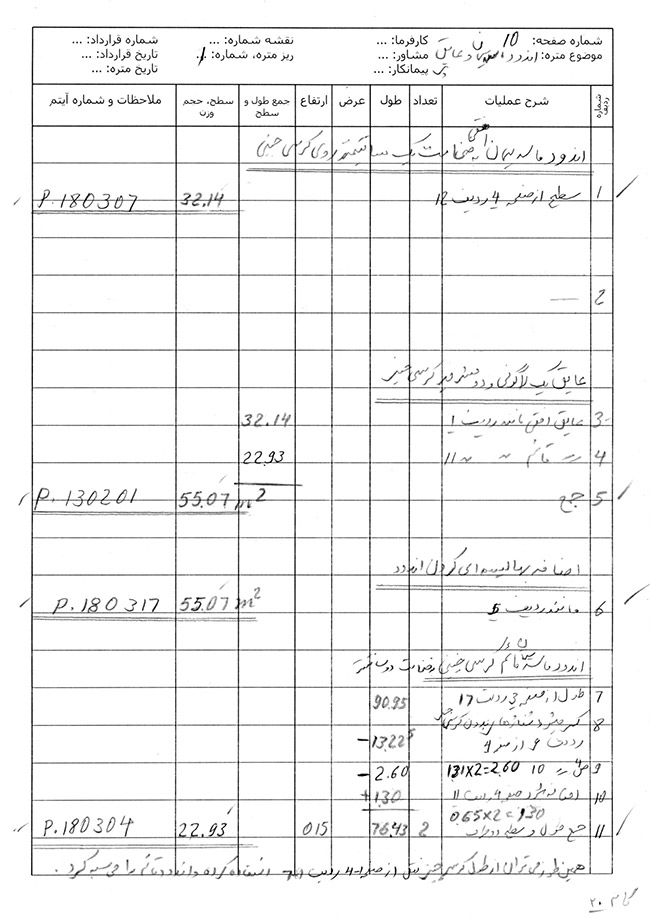 شماره صفحه: 10 کارفرما: ... نقشه شماره: ... شماره قرارداد: ...
موضوع متره: اندود و عایق مشاور: ... ریز متره، شماره: 1 تاریخ قرارداد: ...
پیمانکار: ... تاریخ متره: ...
شماره ردیف شرح عملیات تعداد طول عرض ارتفاع جمع طول و سطح سطح، حجم وزن ملاحظات و شماره آیتم
اندود ماسه سیمان افقی به ضخامت یک سانتیمتر روی کرسی چینی
1 سطح از صفحه 4 ردیف 12 32.14 P.180307
2 —
عایق یک لا گونی و دو قشر قیر کرسی چینی
3- عایق افقی مانند ردیف 1 32.14
4 قائم 11 22.93
5 جمع 55.07 m2 P.130201
اضافه بها لیسه ای کردن اندود
6 مانند ردیف 5 55.07 m2 P.180317
اندود ماسه سیمان قائم کرسی چینی بضخامت دو سانتیمتر
7 طول از صفحه ردیف 17 90.95
8 کسر میشود
ردیف از صفحه 4 -13.225
9 10 1.31X2=2.60 -2.60
10 اضافه میگردد صفحه 4 ردیف 11 +1.30
0.65X2=1.30
11 جمع طول و سطح دو طرف 2 76.43 0.15 22.93 P.180304
همین طور می توان از طول کرسی چینی از صفحه ردیف استفاده کرده و اندود قائم را محاسبه کرد.
20